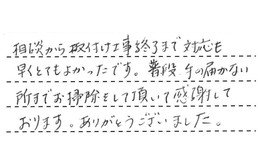 相談から取付け工事終了まで対応も
早くとてもよかったです。普段手の届かない
所までお掃除をして頂いて感謝して
おります。ありがとうございました。